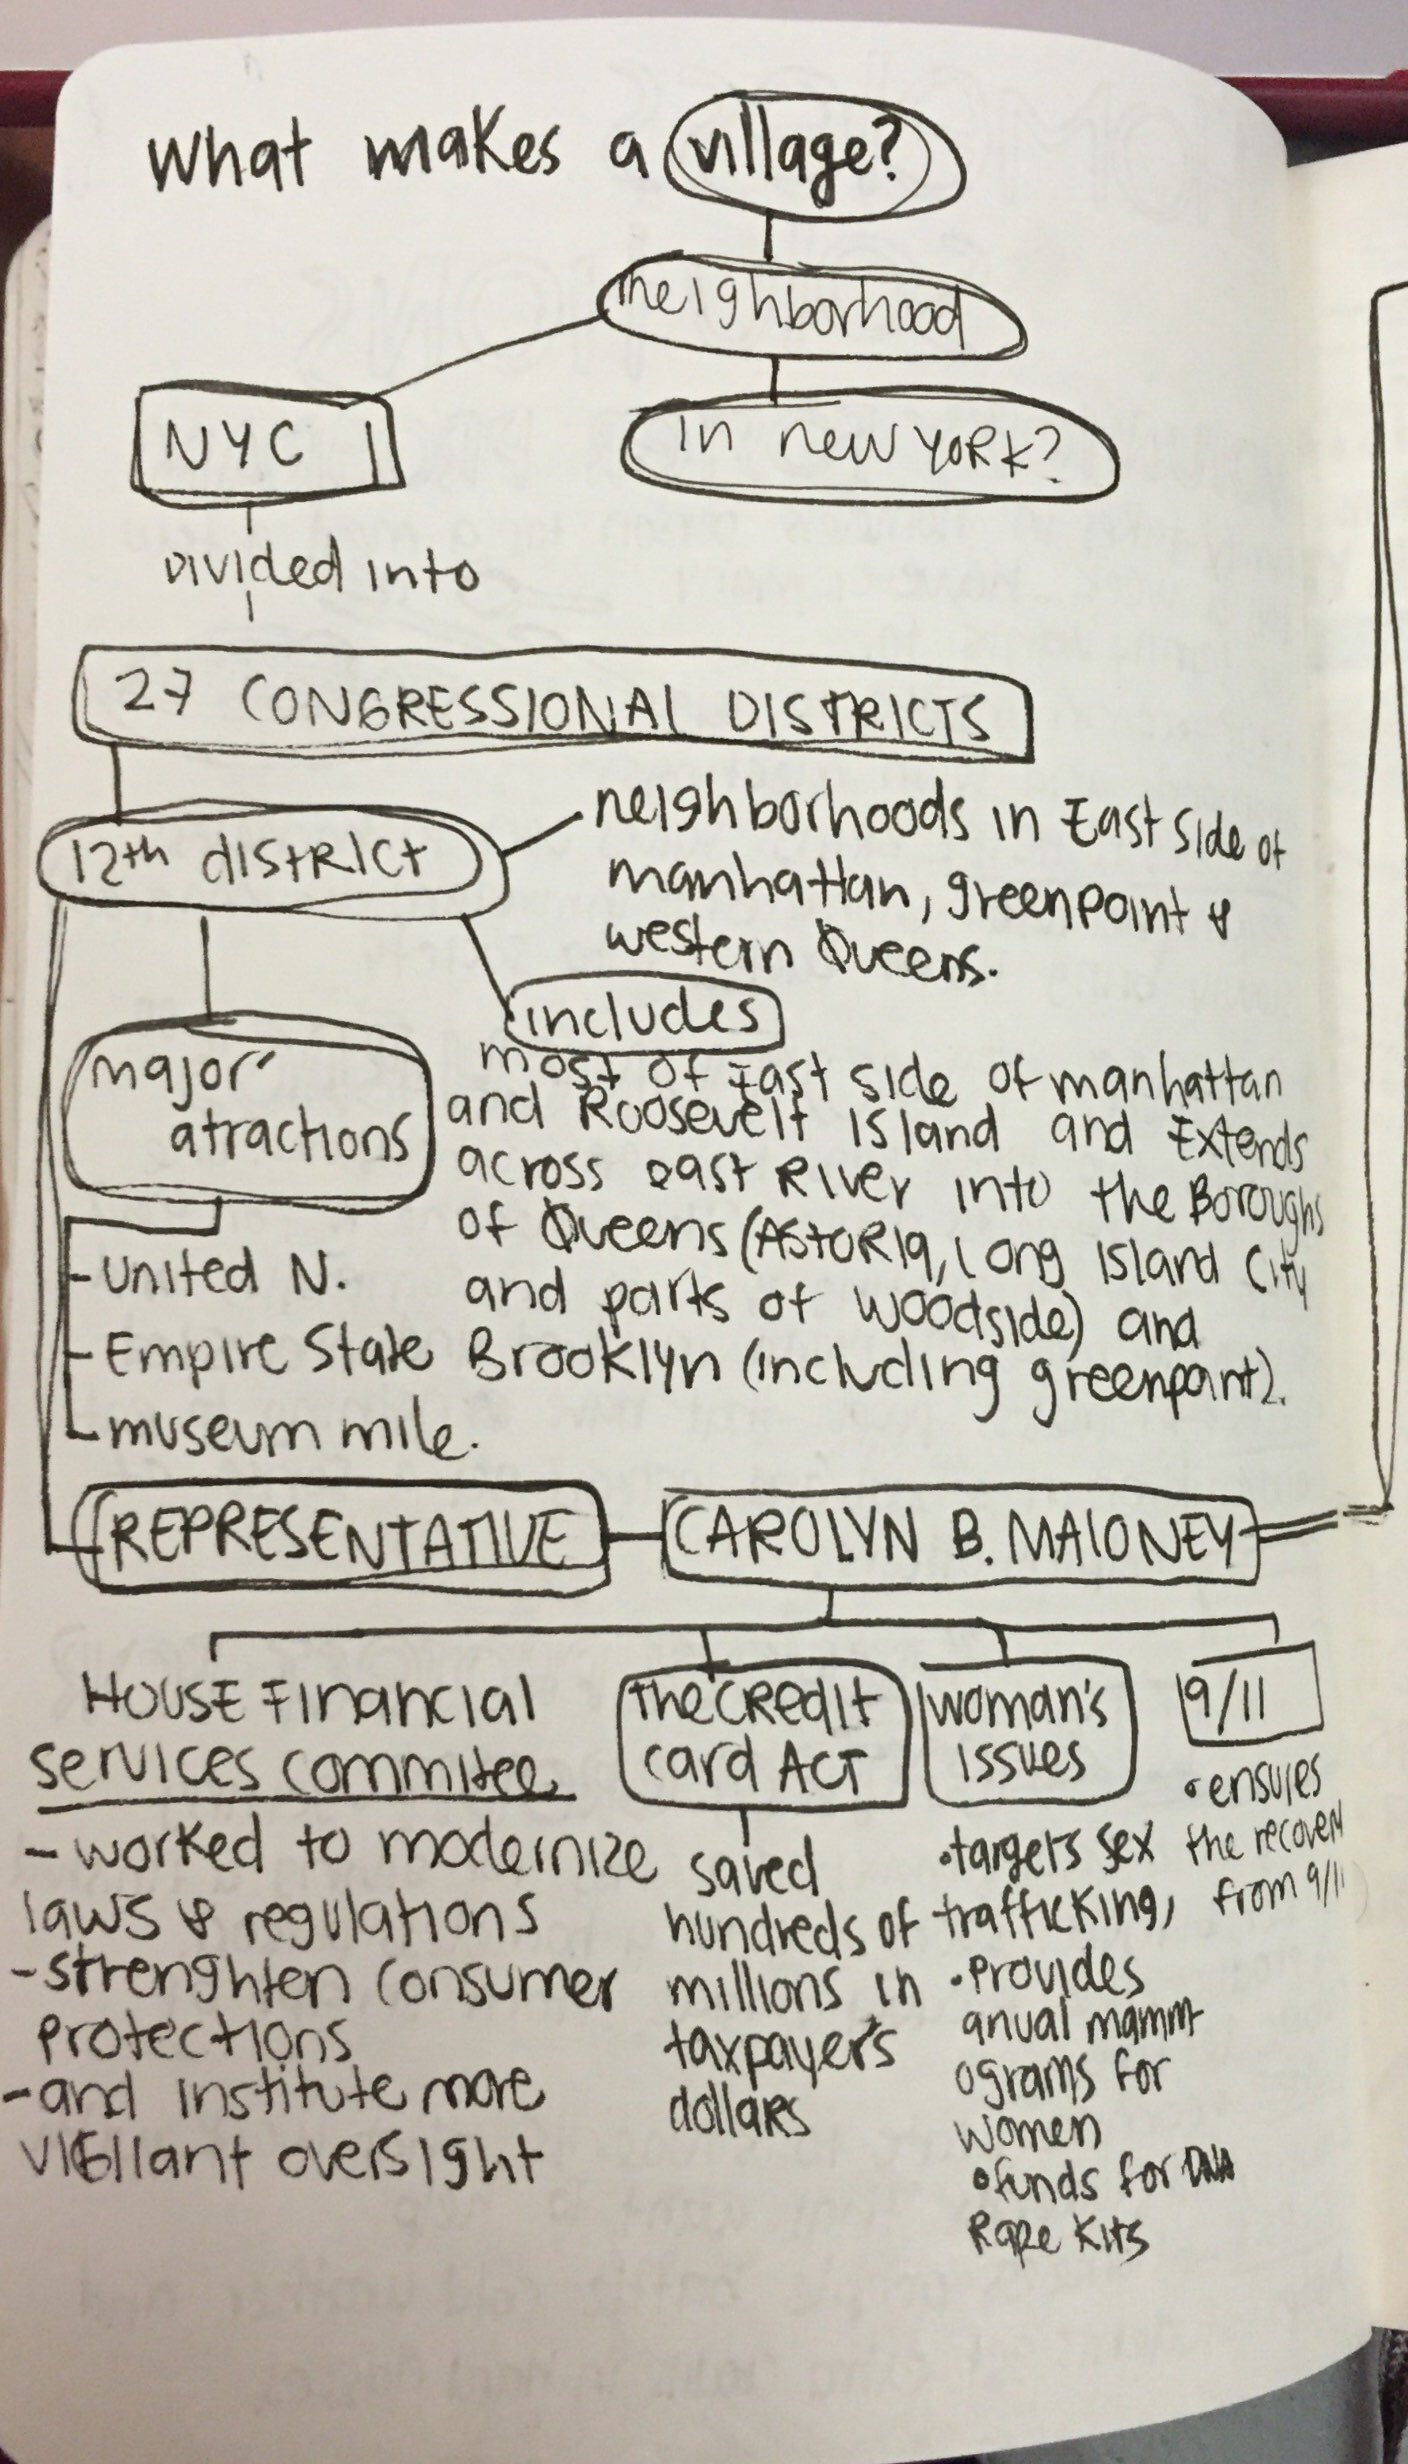 What makes a village?
neighborhood
in new YORK?
NYC
Divided into
27 CONGRESSIONAL DISTRICTS
12th district
neighborhoods in East Side of
manhattan, greenpoint &
western Queens.
includes
most of East side of manhattan
and Roosevelt Island and Extends
across east River into the Boroughs
of Queens (AstORIa, Long Island City
and parts of woodside) and
Brooklyn (including greenpoint).
major
atractions
- United N.
- Empire State
- museum mile.
REPRESENTATIVE
CAROLYN B. MALONEY
HOUSE Financial
services commitee
- worked to modernize
laws & regulations
- strenghten consumer
protections
- and institute more
vigilant oversight
the CRedit
card ACT
saved
hundreds of
millions in
taxpayer's
dollars
woman's
issues
• targets sex
trafficking,
• Provides
anual mamm-
ograms for
women
• funds for DNA
Rape Kits
9/11
• ensures
the recovery
from 9/11